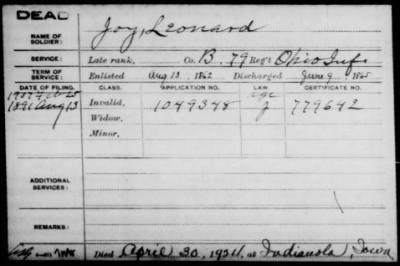 DEAD
NAME OF SOLDIER: Joy, Leonard
SERVICE: Late rank, Co. B. 79 Reg't Ohio Inf.
TERM OF SERVICE: Enlisted Aug 13, 1862 Discharged June 9, 1865
DATE OF FILING. CLASS. APPLICATION NO. LAW. CERTIFICATE NO.
1891 Aug 13 Invalid, 1049348 779642
Widow,
Minor,
ADDITIONAL SERVICES:
REMARKS:
Died April 30, 1934, at Indianola, Iowa